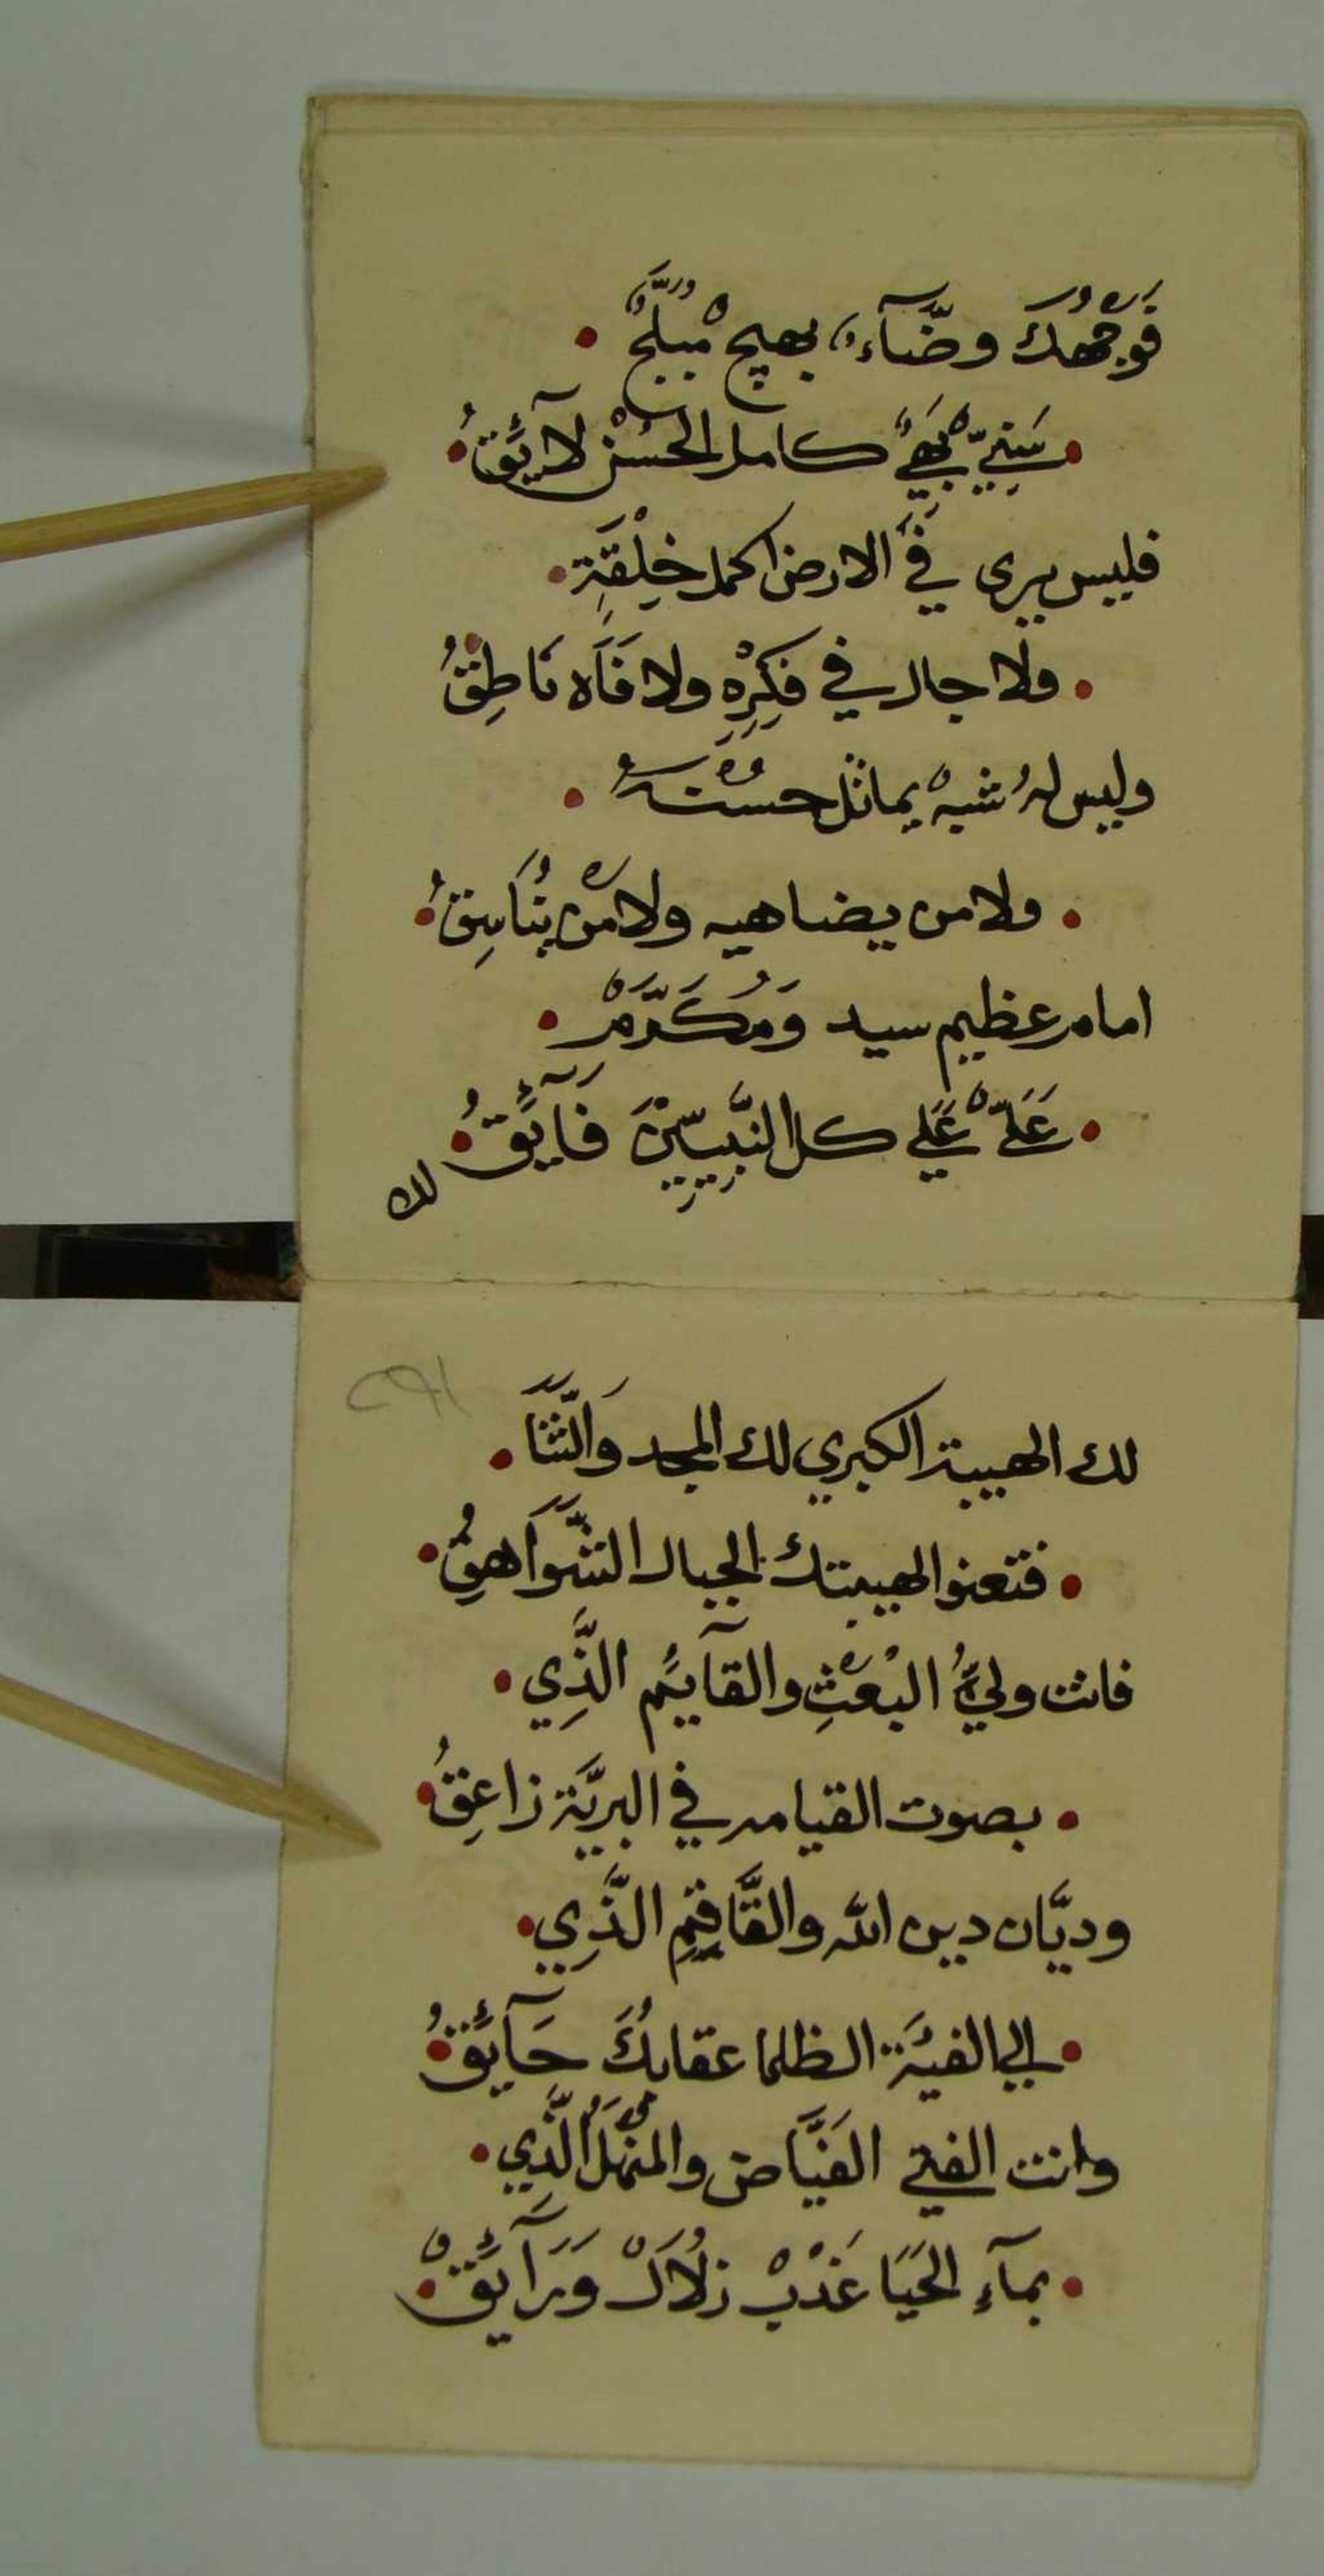 فَوَجْهُكَ وضَّآءٌ بهيج مُبَلَّجٌ
سَنِيٌّ بَهِيٌّ كامل الحُسْن لآئِقُ
فليس يرى في الارض اكمل خِلْقَةٍ
ولا جال في فِكْرِهِ ولا فَاَه نَاطِقُ
وليس لهُ شبهٌ يماثل حسْنهُ
ولا من يضاهيه ولا مَنْ يُنَاسِقُ
امام عظيم سيد وَمُكَرَّمٌ
عَلِيٌّ عَلي كل النَّبِيِّينَ فَآئِقُ
لك
٢٩١
لك الهيبة الكبري لك المجد وَالثَّنَا
فتعنوا لهيبتك الجبال الشَّوَاهِقُ
فانت وليُّ البَعْثِ والقآئِم الَّذِي
بصوت القيامه في البريَّة زاعِقُ
وديَّان دين الله والقَّاقِمِ الَّذِي
الي الفئَة الظلما عقابُكَ حَآئِقُ
وانت الفتي الفَيَّاض والمَنْهَلُ الَّذِي
بمآءِ الحَيَا عَذْبٌ زلاُلٌ وَرَآئِقٌ